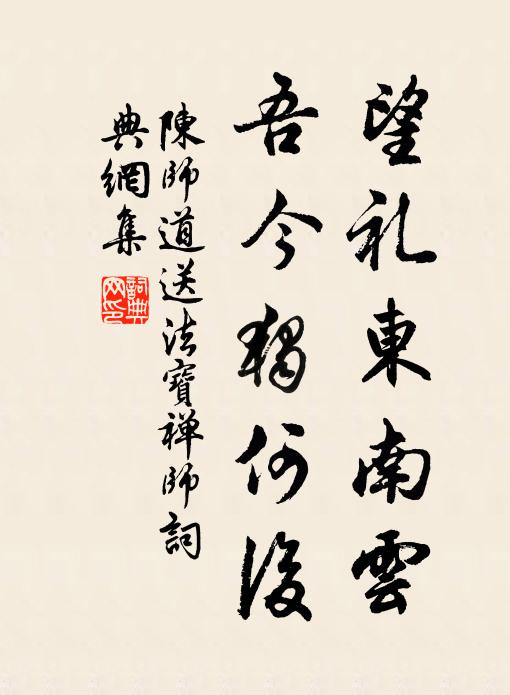 望礼東南雲
吾今獨何後
陳師道送法寶禪師詞
典網集
詞典
网印